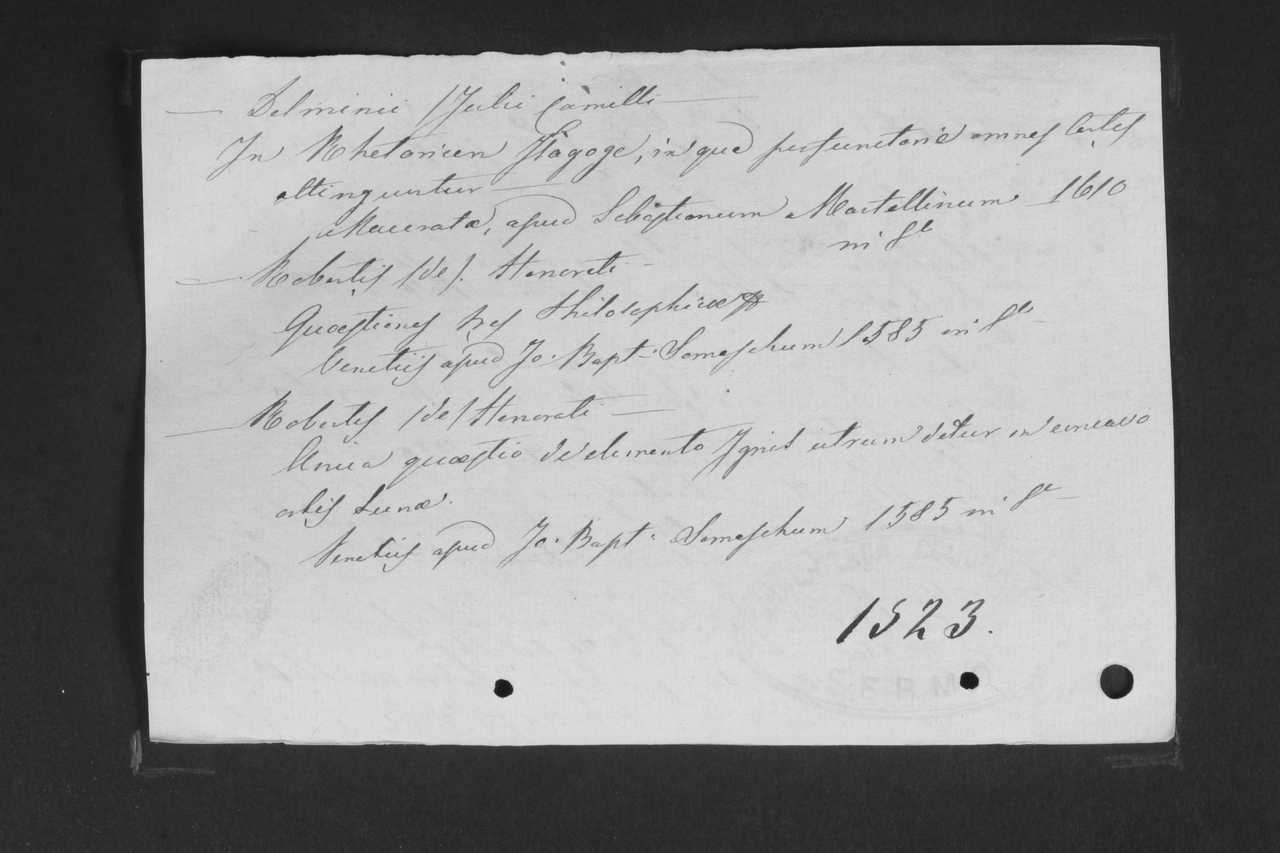 — Delminii /Julii Camilli —
In Rhetoricen Isagoge, in qua perfunctorie omnes Artes
attinguntur —
Maceratæ, apud Sebastianum Martellinum 1610
in 8º
— Robertis /de/. Honorati —
Quæstiones tres Philosophicæ
Venetiis apud Jo. Bapt. Somaschum 1585 in 8º —
— Robertis /de/ Honorati —
Unica quæstio de elemento Ignis utrum detur in concavo
orbis Lunæ.
Venetiis apud Jo. Bapt. Somaschum 1585 in 8º —
1523.